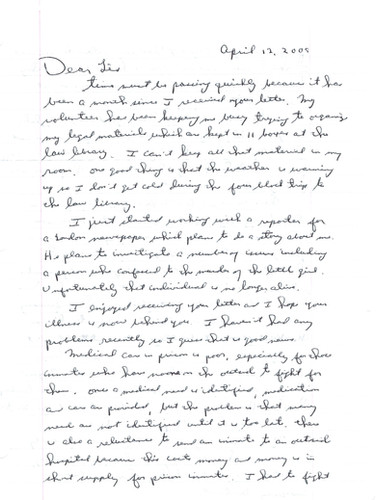 April 12, 200
Dear
time must be passing quickly because it has
been a month since I received your letter. My
volunteer has been keeping me busy trying to organize
my legal materials which are kept in 11 boxes at the
law library. I can't keep all that material in my
room. One good thing is that the weather is warming
up so I don't get cold during the four block trip to
the law library.
I just started working with a reporter for
a London newspaper which plans to do a story about me.
He plans to investigate a number of issues including
a person who confessed to the murder of the little girl.
Unfortunately that individual is no longer alive.
I enjoyed receiving your letter and I hope your
illness is now behind you. I haven't had any
problems recently so I guess that is good news.
Medical care in prison is poor, especially for those
inmates who have no one on the outside to fight for
them. Once a medical need is identified, medication
and care are provided, but the problem is that many
needs are not identified until it is too late. There
is also a reluctance to send an inmate to an outside
hospital because this costs money and money is in
short supply for prison inmates. I had to fight